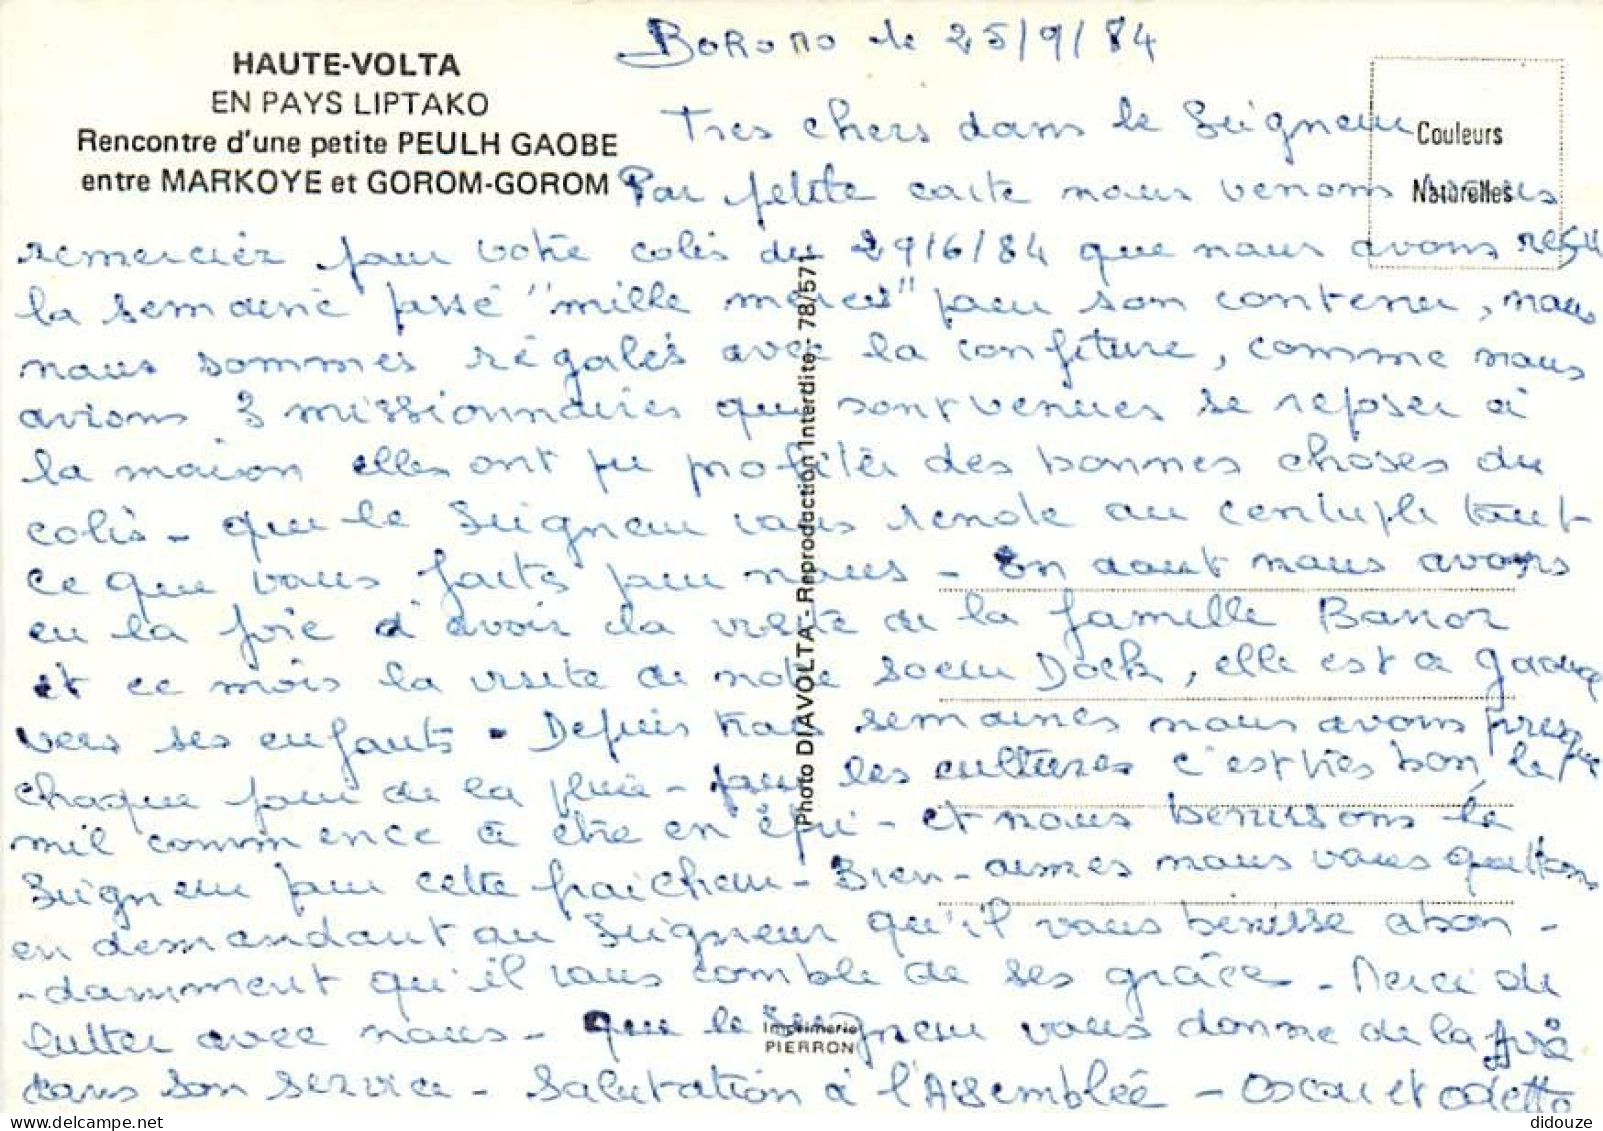 HAUTE-VOLTA
EN PAYS LIPTAKO
Rencontre d'une petite PEULH GAOBE
entre MARKOYE et GOROM-GOROM
Couleurs
Naturelles
Bororo le 25/9/84
Tres chers dans le Seigneur
Par petite carte nous venons vous
remerciér pour votre colis du 29/6/84 que nous avons resu
la semaine passé "mille mercis" pour son contenu, nous
nous sommes régalés avec la confiture, comme nous
avions 3 missionnaires qui sont venues se reposer à
la maison elles ont pu profiter des bonnes choses du
colis - que le Seigneur vous rende au centuple tout
ce que vous faites pour nous - En aout nous avons
eu la joie d'avoir la visite de la famille
et ce mois la visite de notre soeur Dock, elle est à
vers ses enfants. Depuis trois semaines nous avons presque
chaque jour de la pluie - pour les cultures c'est très bon, le
mil commence à être en épi - et nous benissons le
Seigneur pour cette fraicheur - Bien-aimes nous vous quittons
en demandant au Seigneur qu'il vous benisse abon-
-damment qu'il vous comble de ses grâces - Merci de
lutter avec nous - que le Seigneur vous donne de la joie
dans son service - Salutation à l'Assemblée - Oscar et Odette
Photo DIAVOLTA - Reproduction Interdite - 78/571
Imprimerie
PIERRON
didouze